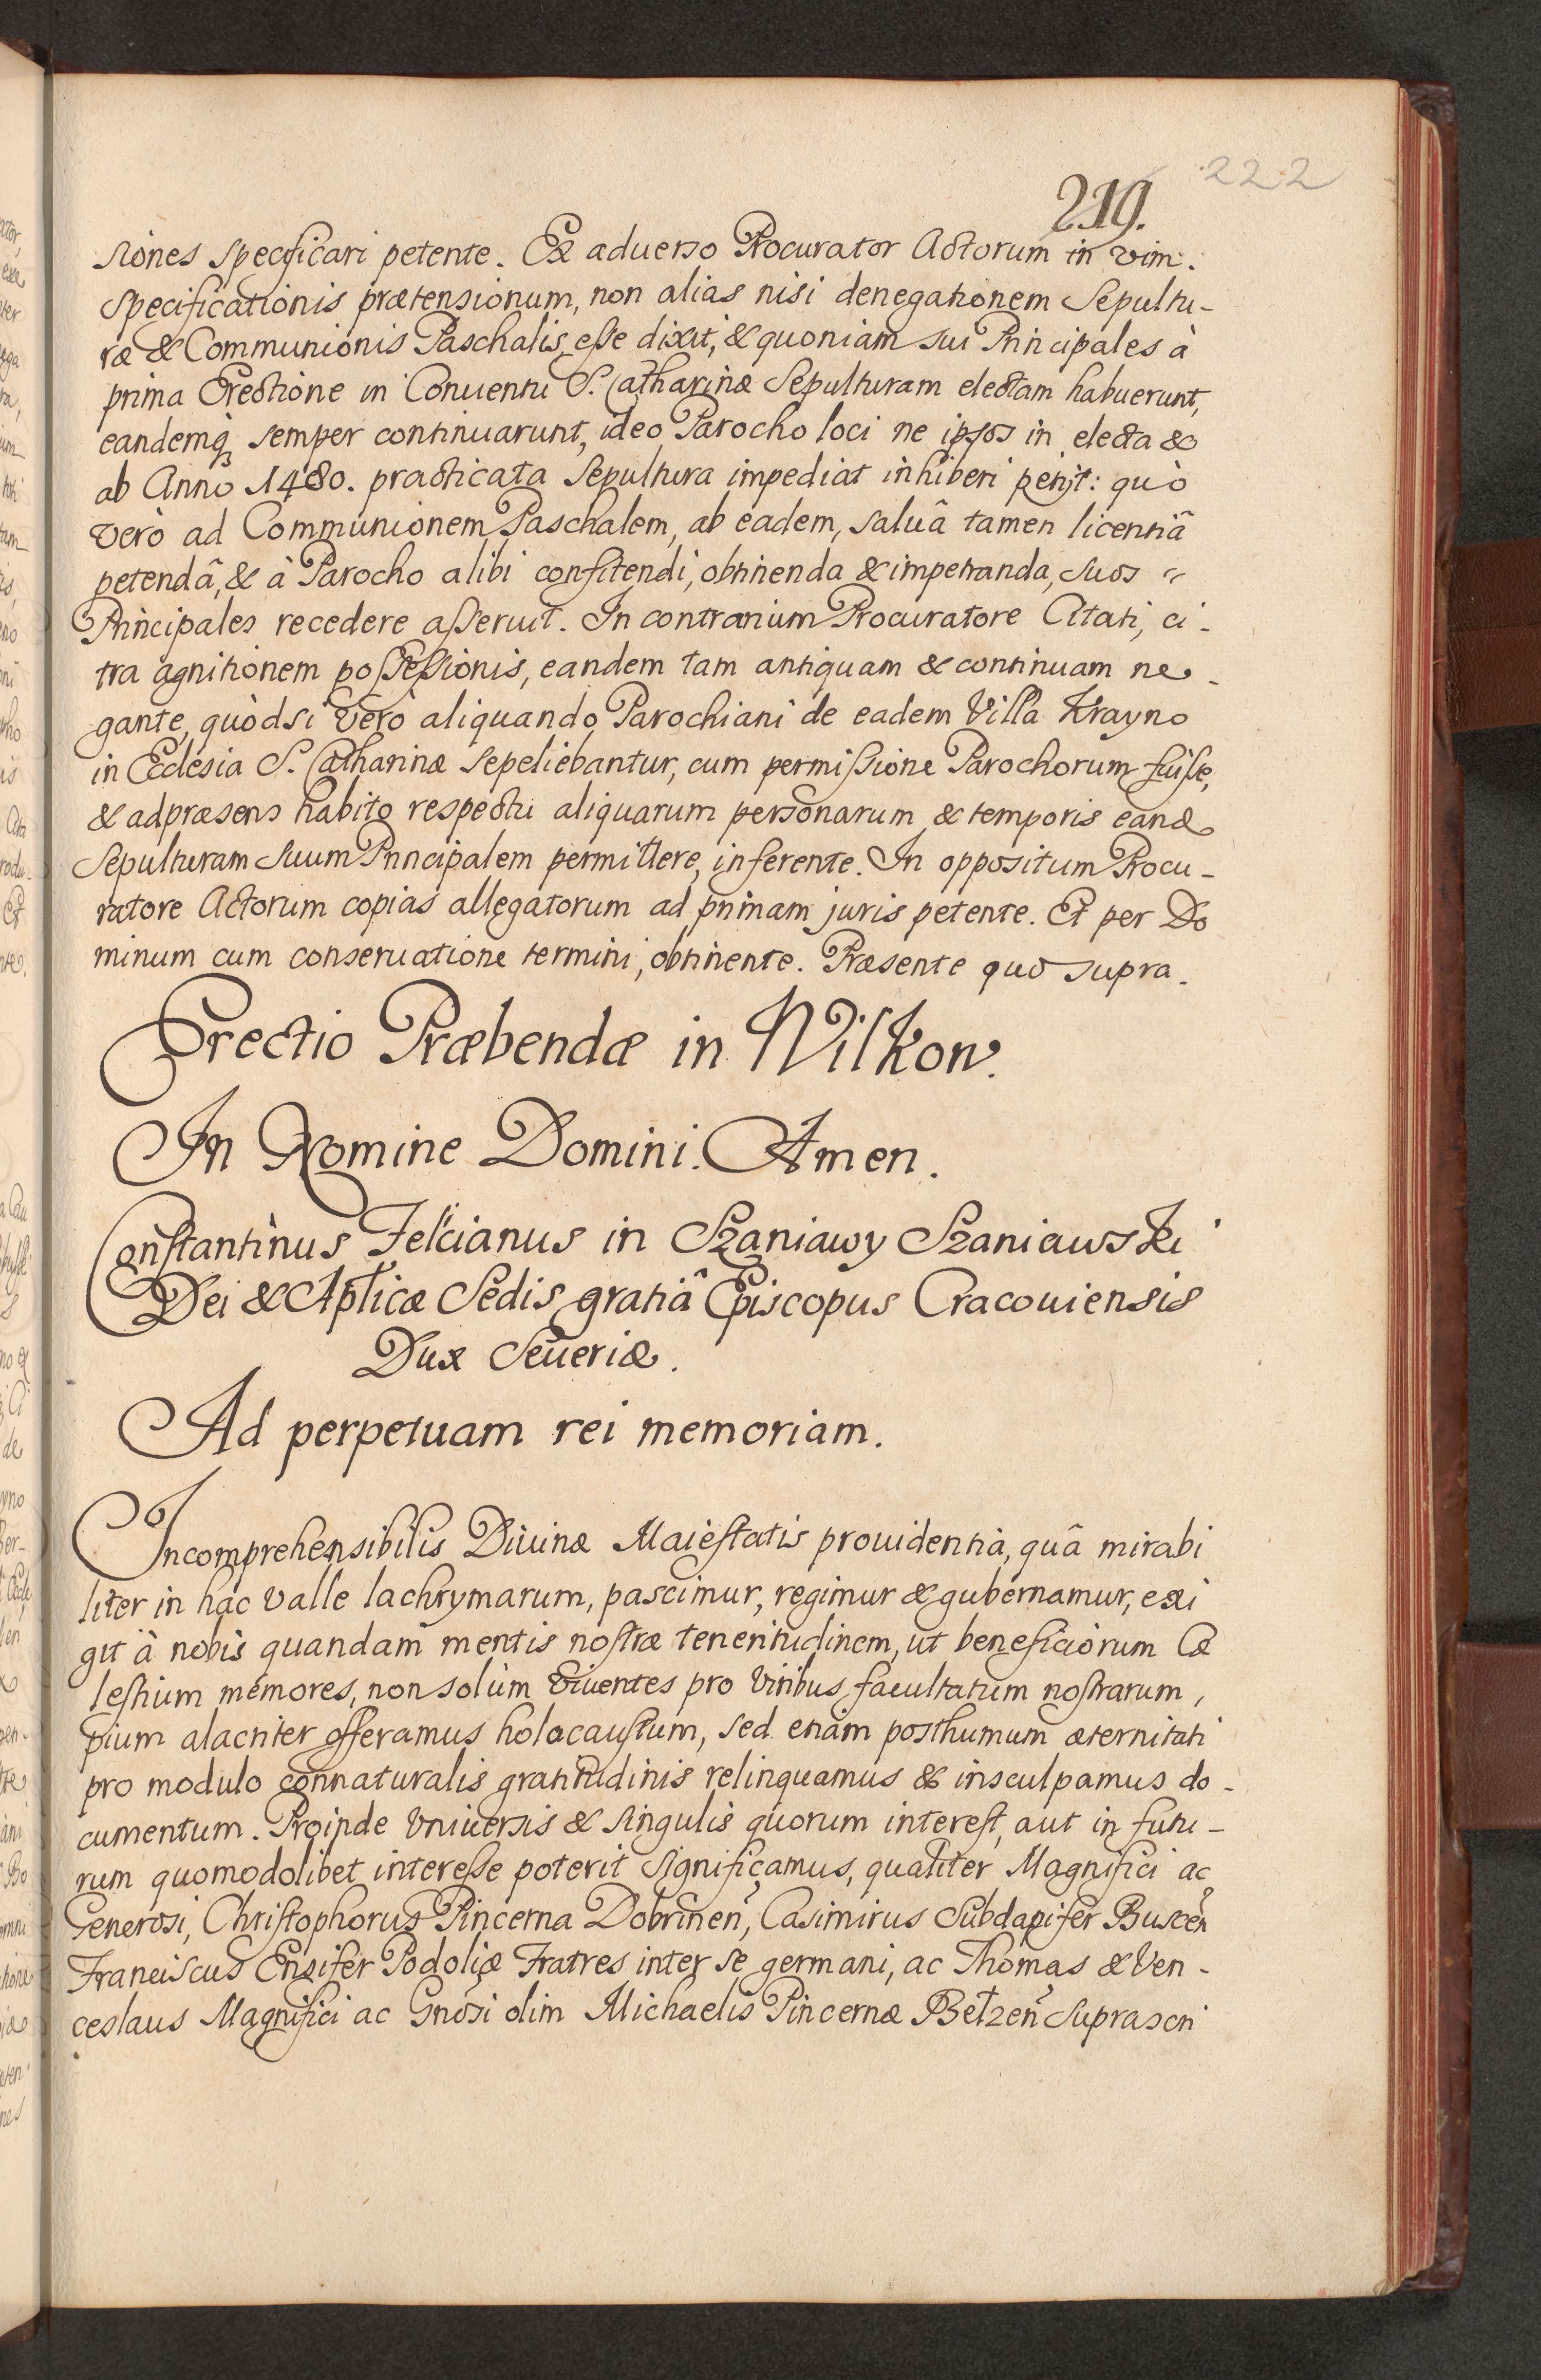 222
219.
siones specificari petente. Ex aduerso Procurator Actorum in vim.
specificationis prætensionum, non alias nisi denegationem Sepultu-
ræ & Communionis Paschalis eſse dixit, & quoniam sui Principales à
prima Erectione in Conuentu S. Catharinæ Sepulturam electam habuerunt,
eandemq́ semper continuarunt, ideo Parocho loci ne ipsos in electa &
ab Anno 1480. practicata Sepultura impediat inhiberi petijt: quò
verò ad Communionem Paschalem, ab eadem, saluâ tamen licentiâ
petendâ, & à Parocho alibi confitendi, obtinenda & impetranda, suos
Principales recedere aſseruit. In contrarium Procuratore Citati, ci-
tra agnitionem poſseſsionis, eandem tam antiquam & continuam ne-
gante, quòdsi verò aliquando Parochiani de eadem Villa Krayno
in Ecclesia S. Catharinæ sepeliebantur, cum permiſsione Parochorum fuiſse,
& adpræsens habito respectu aliquarum personarum & temporis eand
Sepulturam suum Principalem permittere, inferente. In oppositum Procu-
ratore Actorum copias allegatorum ad primam juris petente. Et per Do
minum cum conseruatione termini, obtinente. Præsente quo supra.
Erectio Præbendæ in Wilkow.
In Nomine Domini. Amen.
Conſtantinus Felicianus in Szaniawy Szaniawski
Dei & Aplicæ Sedis gratiâ Episcopus Cracouiensis
Dux Seueriæ.
Ad perpetuam rei memoriam.
Incomprehensibilis Diuinæ Maieſtatis prouidentia, quâ mirabi
liter in hac valle lachrymarum, pascimur, regimur & gubernamur, exi
git à nobis quandam mentis noſtræ teneritudinem, ut beneficiorum Cæ
leſtium memores, non solùm viuentes pro viribus facultatum noſtrarum,
pium alacriter offeramus holocauſtum, sed etiam posthumum æternitati
pro modulo connaturalis gratitudinis relinquamus & insculpamus do-
cumentum. Proinde vniuersis & singulis quorum intereſt, aut in futu-
rum quomodolibet intereſse poterit significamus, qualiter Magnifici ac
Generosi, Chriſtophorus Pincerna Dobrinen̄, Casimirus Subdapifer Buscen̄
Franciscus Ensifer Podoliæ Fratres inter se germani, ac Thomas & Ven-
ceslaus Magnifici ac Gnosi olim Michaelis Pincernæ Betzen̄ suprascri